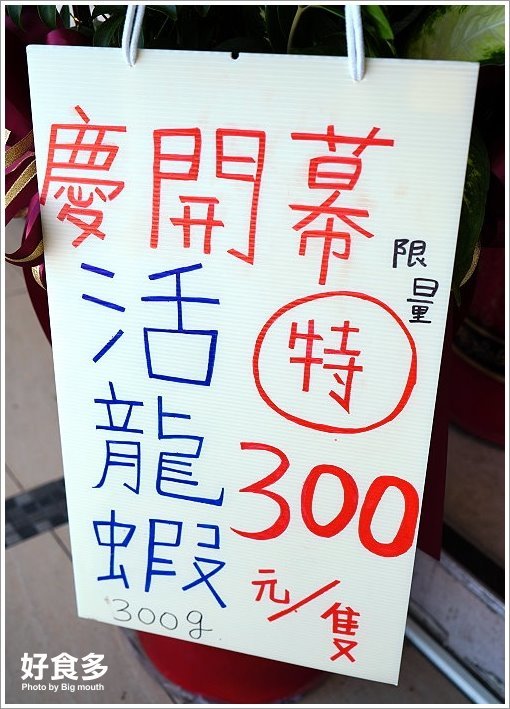 慶開幕
限量
活龍蝦
300g
特
300
元/隻
好食多
Photo by Big mouth